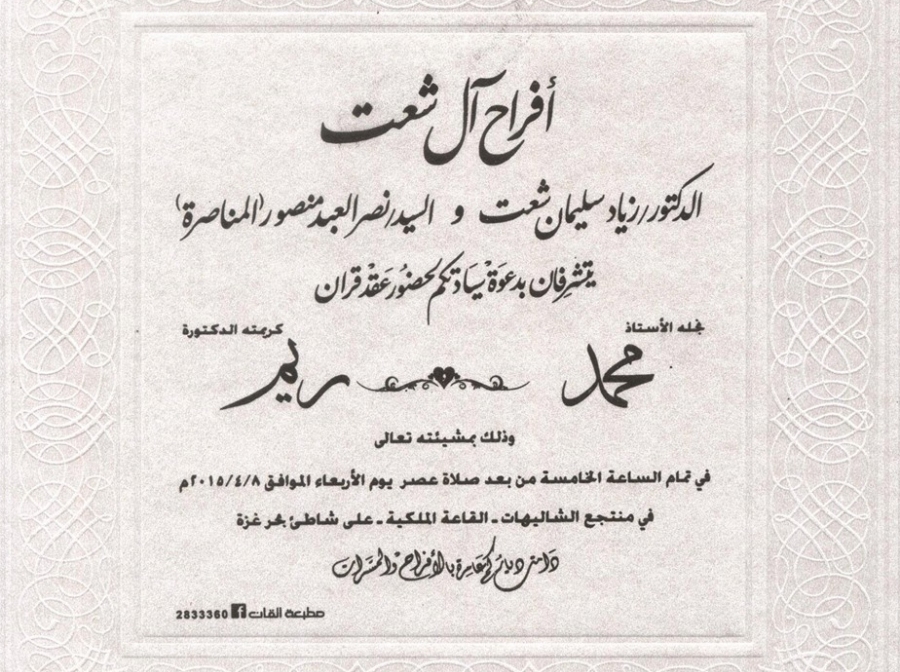 أفراح آل شعت
الدكتور/ زياد سليمان شعت و السيد/ نصر العبد منصور (المناصرة)
يتشرفان بدعوة سيادتكم لحضور عقد قران
نجله الأستاذ كريمته الدكتورة
محمد ريم
وذلك بمشيئته تعالى
في تمام الساعة الخامسة من بعد صلاة عصر يوم الأربعاء الموافق ٢٠١٥/٤/٨م
في منتجع الشاليهات - القاعة الملكية - على شاطئ بحر غزة
دامت دياركم عامرة بالأفراح والمسرات
مطبعة القات 2833360